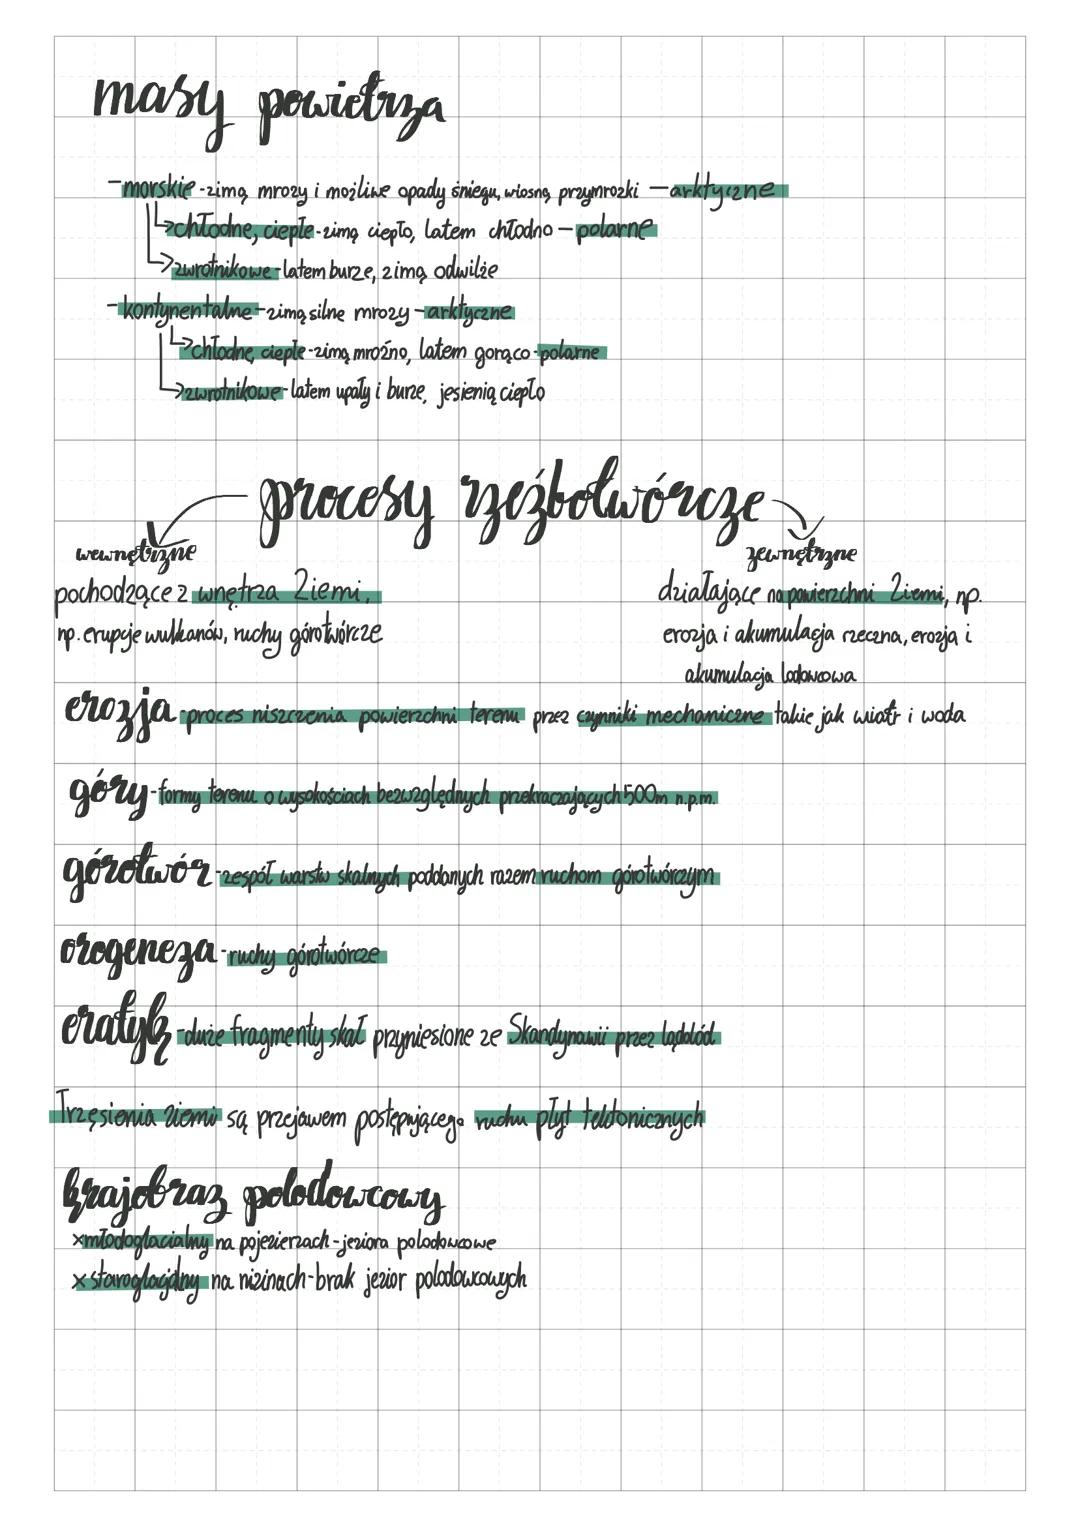 masy powietrza
-morskie-zimą mrozy i możliwe opady śniegu, wiosną przymrozki - arktyczne
chłodne, ciepłe-zimą ciepło, latem chłodno - polarne
zwrotnikowe-latem burze, zimą odwilże
-kontynentalne-zimą silne mrozy - arktyczne
chłodne, ciepłe-zimą mroźno, latem gorąco-polarne
zwrotnikowe-latem upały i burze, jesienią ciepło
procesy rzeźbotwórcze
wewnętrzne
pochodzące z wnętrza Ziemi,
np. erupcje wulkanów, ruchy górotwórcze
zewnętrzne
działające na powierzchni Ziemi, np.
erozja i akumulacja rzeczna, erozja i
akumulacja lodowcowa
erozja-proces niszczenia powierzchni terenu przez czynniki mechaniczne takie jak wiatr i woda
góry-formy terenu o wysokościach bezwzględnych przekraczających 500m n.p.m.
górotwór-zespół warstw skalnych poddanych razem ruchom górotwórczym
orogeneza-ruchy górotwórcze
eratyk-duże fragmenty skał przyniesione ze Skandynawii przez lądolód
Trzęsienia ziemi są przejawem postępującego ruchu płyt tektonicznych
krajobraz polodowcowy
×młodoglacialny na pojezierzach-jeziora polodowcowe
×staroglacjalny na nizinach-brak jezior polodowcowych